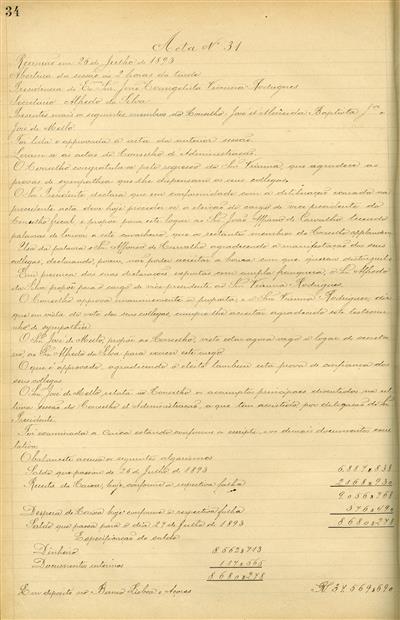 34
Acta Nº 31
Reunião em 26 de Julho de 1893
Abertura da sessão ás 2 horas da tarde
Presidencia do Exmo Snr. João Evangelista Vianna Rodrigues
Secretario Alfredo da Silva
Presentes mais os seguintes membros do Conselho, José d'Almeida Baptista e
José de Mello.
Foi lida e approvada a acta da anterior sessão.
Leram-se as actas do Conselho d'Administração.
O Conselho congratula-se pelo regresso do Snr. Vianna, que agradece as
provas de sympathia que lhe dispensaram os seus collegas.
O Snr. Presidente declara que em conformidade com a deliberação tomada na
precedente acta deve hoje proceder-se á eleição do cargo de vice presidente do
Conselho fiscal, e propõe para este logar ao Snr. João Affonso de Carvalho, tecendo
palavras de louvor a este cavalheiro, que os restantes membros do Conselho applaudem.
Usa da palavra o Snr. Affonso de Carvalho agradecendo a manifestação dos seus
collegas, declarando, porem, não poder acceitar a honra com que
Em presença das suas declarações expostas com ampla franqueza, o Snr. Alfredo
da Silva propõe para o cargo de vice-presidente ao Snr. Vianna Rodrigues.
O Conselho approva unanimemente a proposta, e o Snr. Vianna Rodrigues, diz
que em vista do voto dos seus collegas, cumpre-lhe acceitar agradecendo este testemu-
nho de sympathia.
O Snr. José de Mello, propõe ao Conselho, visto estar agora vago o logar de secreta-
rio, ao Snr. Alfredo da Silva para exercer este cargo.
O que é approvado, agradecendo o eleito tambem esta prova de confiança dos
seus collegas.
O Snr. José de Mello relata ao Conselho os assumptos principaes ventilados na ul-
tima sessão do Conselho d'Administração, a que tem assistido por delegação do Snr.
Presidente.
Foi examinada a Caixa estando conforme a escripta e os demais documentos
O balancete accusa os seguintes algarismos
Saldo que passou de 26 de Julho de 1893 6.887$838
Receita da Caixa, hoje conforme a respectiva folha 2.168$930
9.056$768
Despeza da Caixa hoje conforme a respectiva folha 376$490
Saldo que passa para o dia 27 de Julho de 1893 8.680$278
Especificação do saldo
Dinheiro 8.562$713
Documentos internos 117$565
8.680$278
Em deposito no Banco Lisboa e Açores 37.569$690